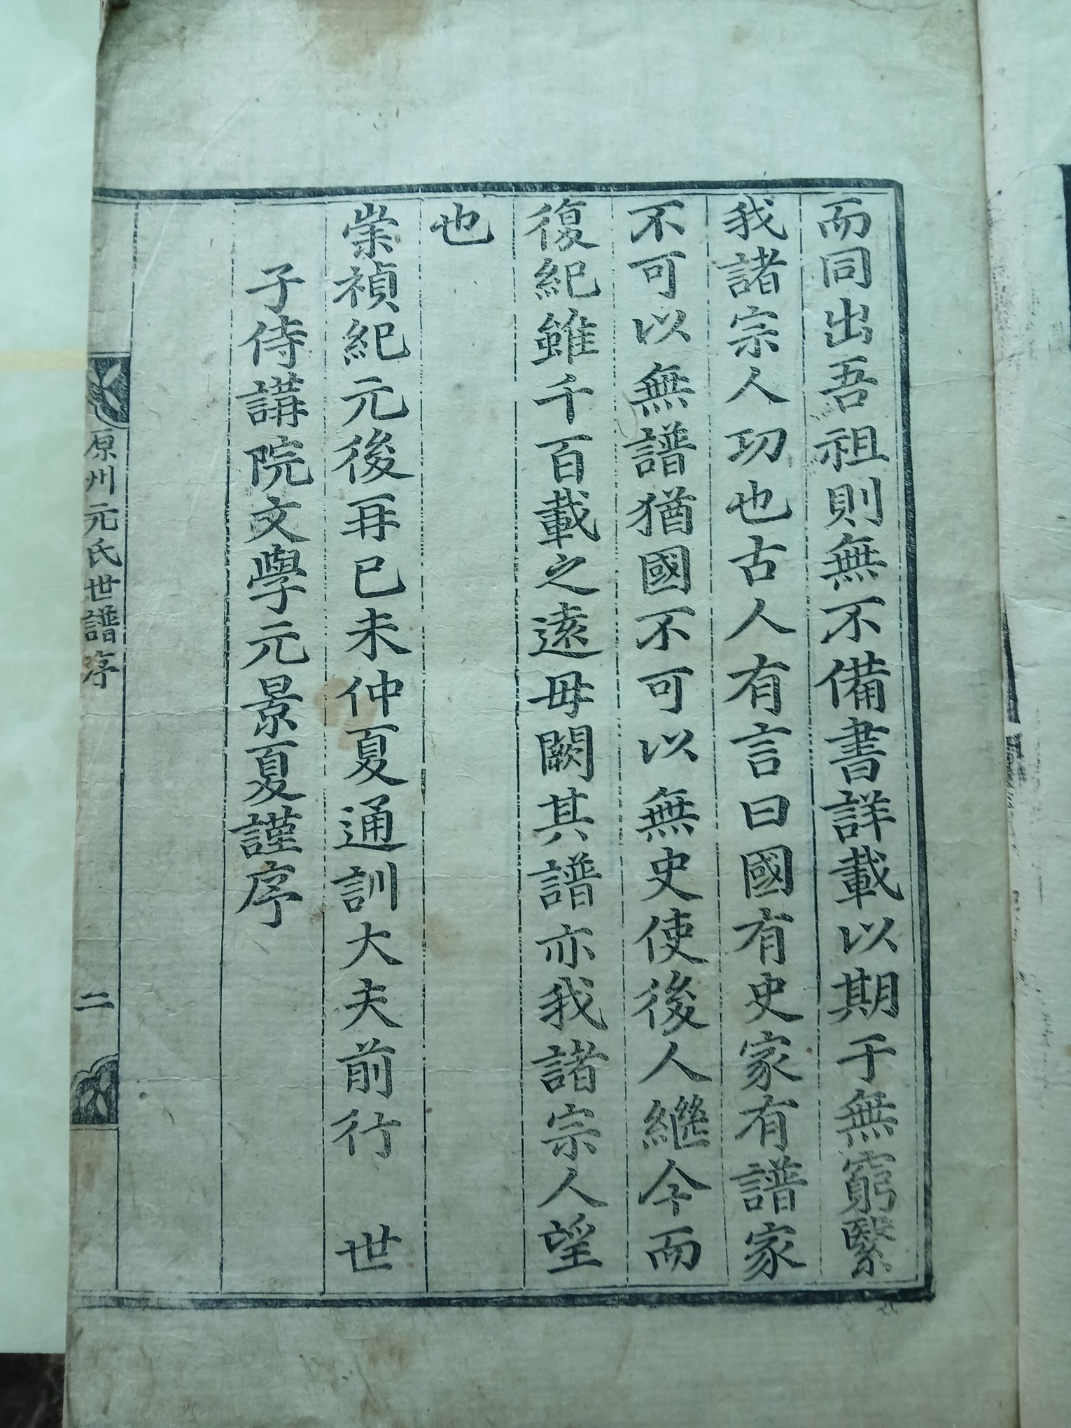 而同出吾祖則無不備書詳載以期于無窮繄
我諸宗人功也古人有言曰國有史家有譜家
不可以無譜猶國不可以無史使後人繼今而
復紀雖千百載之遠毋闕其譜亦我諸宗人望
也
崇禎紀元後再已未仲夏通訓大夫前行 世
子侍講院文學元景夏謹序
原州元氏世譜序
二